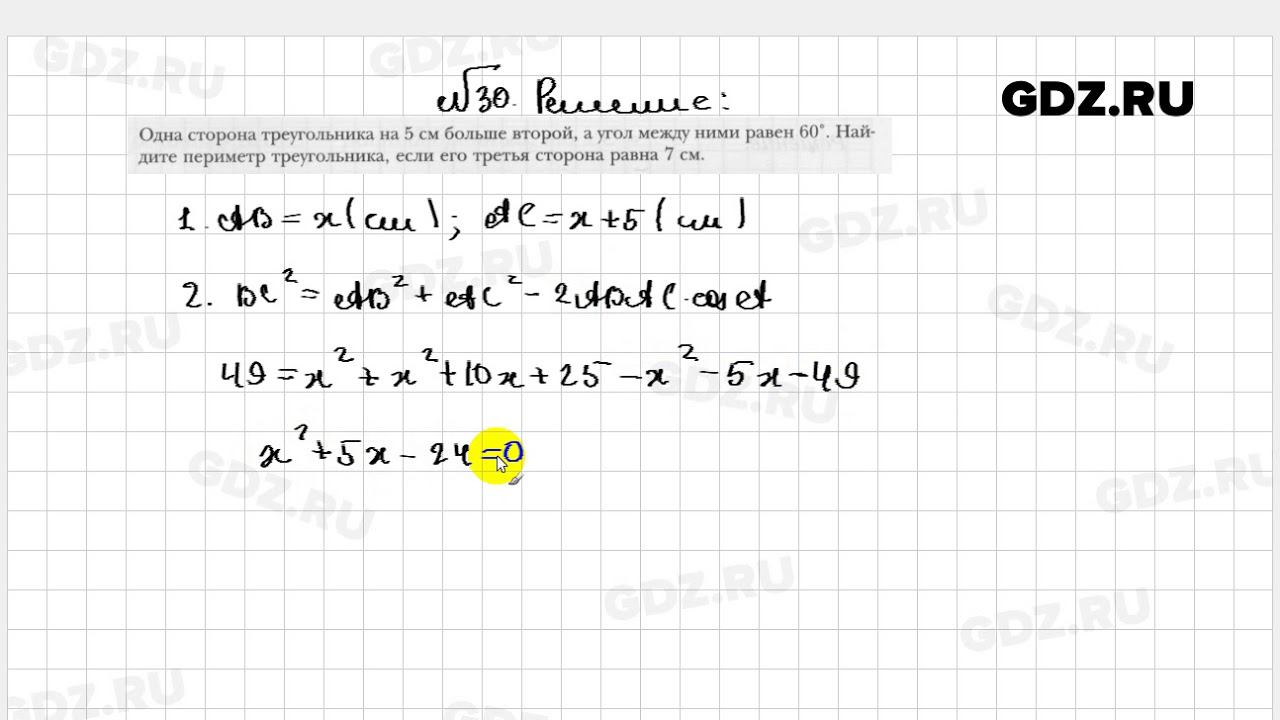 GDZ.RU
№30. Решение:
Одна сторона треугольника на 5 см больше второй, а угол между ними равен 60°. Най-
дите периметр треугольника, если его третья сторона равна 7 см.
1. AB = x (см); AC = x + 5 (см)
2. BC² = AB² + AC² - 2AB·AC·cos A
49 = x² + x² + 10x + 25 - x² - 5x - 49
x² + 5x - 24 = 0
GDZ.RU
GDZ.RU
GDZ.RU
GDZ.RU
GDZ.RU
GDZ.RU
GDZ.RU
GDZ.RU
GDZ.RU
GDZ.RU
GDZ.RU
GDZ.RU
GDZ.RU